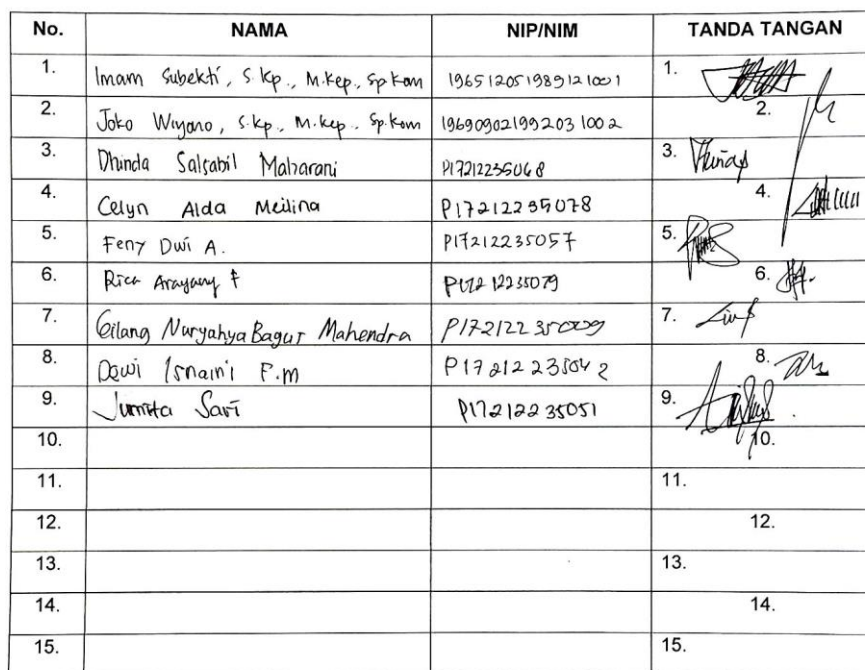 No. NAMA NIP/NIM TANDA TANGAN
1. Imam Subekti, S.Kp., M.Kep., Sp.Kom 196512051989121001 1.
2. Joko Wiyono, S.Kp., M.Kep., Sp.Kom 196909021992031002 2.
3. Dhinda Salsabil Maharani P17212235068 3.
4. Celyn Alda Meilina P17212235078 4.
5. Feny Dwi A. P17212235057 5.
6. Rica P17212235079 6.
7. Gilang Nuryahya Bagus Mahendra P17212235009 7.
8. Dewi Isnaini P.M P17212235042 8.
9. Jumita Sari P17212235051 9.
10. 10.
11. 11.
12. 12.
13. 13.
14. 14.
15. 15.